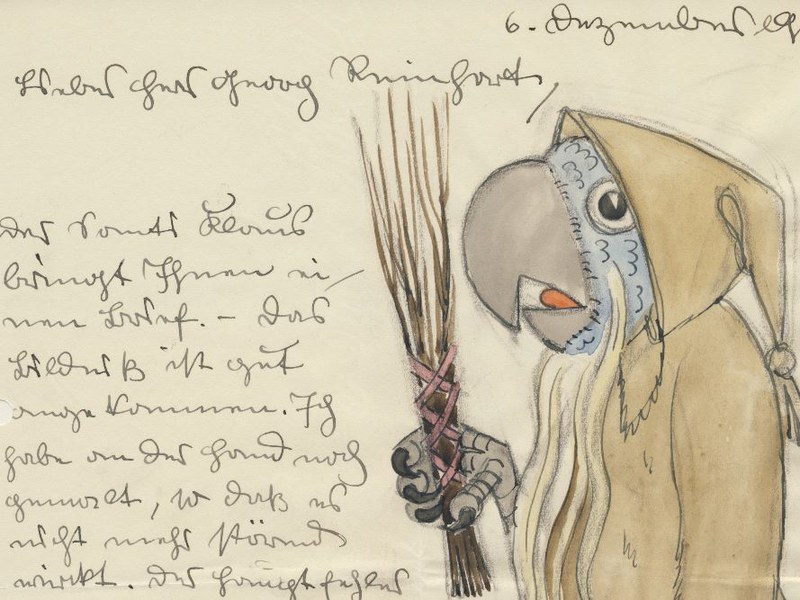 6. Dezember 19
Lieber Herr Georg Reinhart,
Der Sankt Klaus
bringt Ihnen ei-
nen Brief. – Das
Bildniß ist gut
angekommen. Ich
habe an der Hand noch
gemalt, so daß es
nicht mehr störend
wirkt. Der Hauptfehler